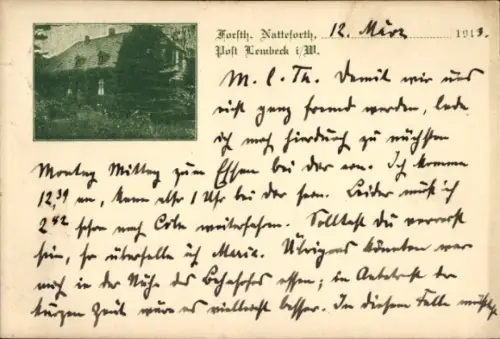 Forsth. Natteforth, 12. März 1913
Post Lembeck i/W.
M. l. Th. Damit wir uns
nicht ganz fremd werden, lade
ich mich hierdurch zu nächsten
Montag Mittag zum Essen bei dir ein. Ich komme
12,39 an, kann also 1 Uhr bei dir sein. Leider muß ich
2 42 schon nach Cöln weiterfahren. Solltest Du verreist
sein, so überfalle ich Maria. Übrigens könnten wir
auch in der Nähe des Bahnhofs essen; in Anbetracht der
kurzen Zeit wäre es vielleicht besser. In diesem Falle müßt